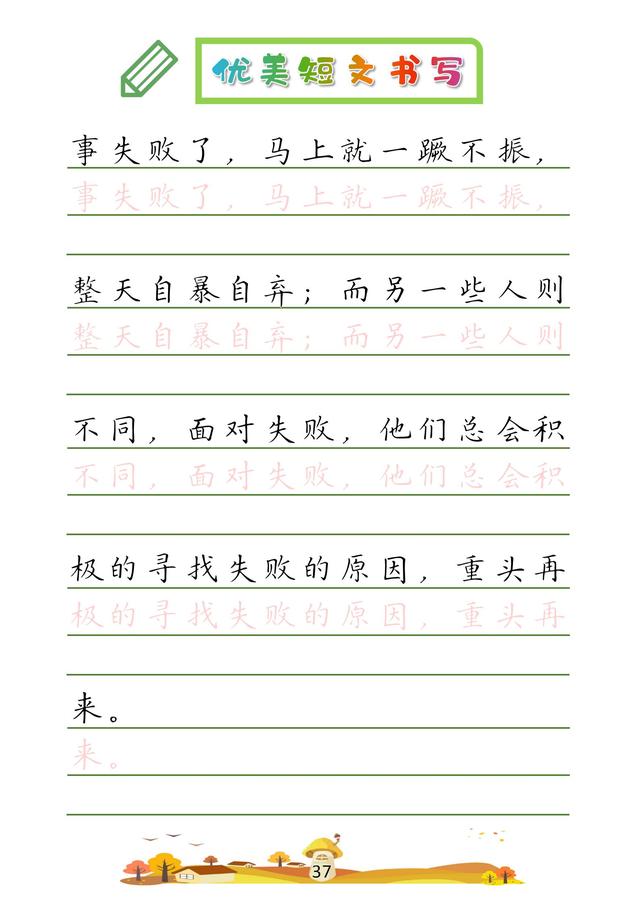 优美短文书写
事失败了，马上就一蹶不振，
事失败了，马上就一蹶不振，
整天自暴自弃；而另一些人则
整天自暴自弃；而另一些人则
不同，面对失败，他们总会积
不同，面对失败，他们总会积
极的寻找失败的原因，重头再
极的寻找失败的原因，重头再
来。
来。
37